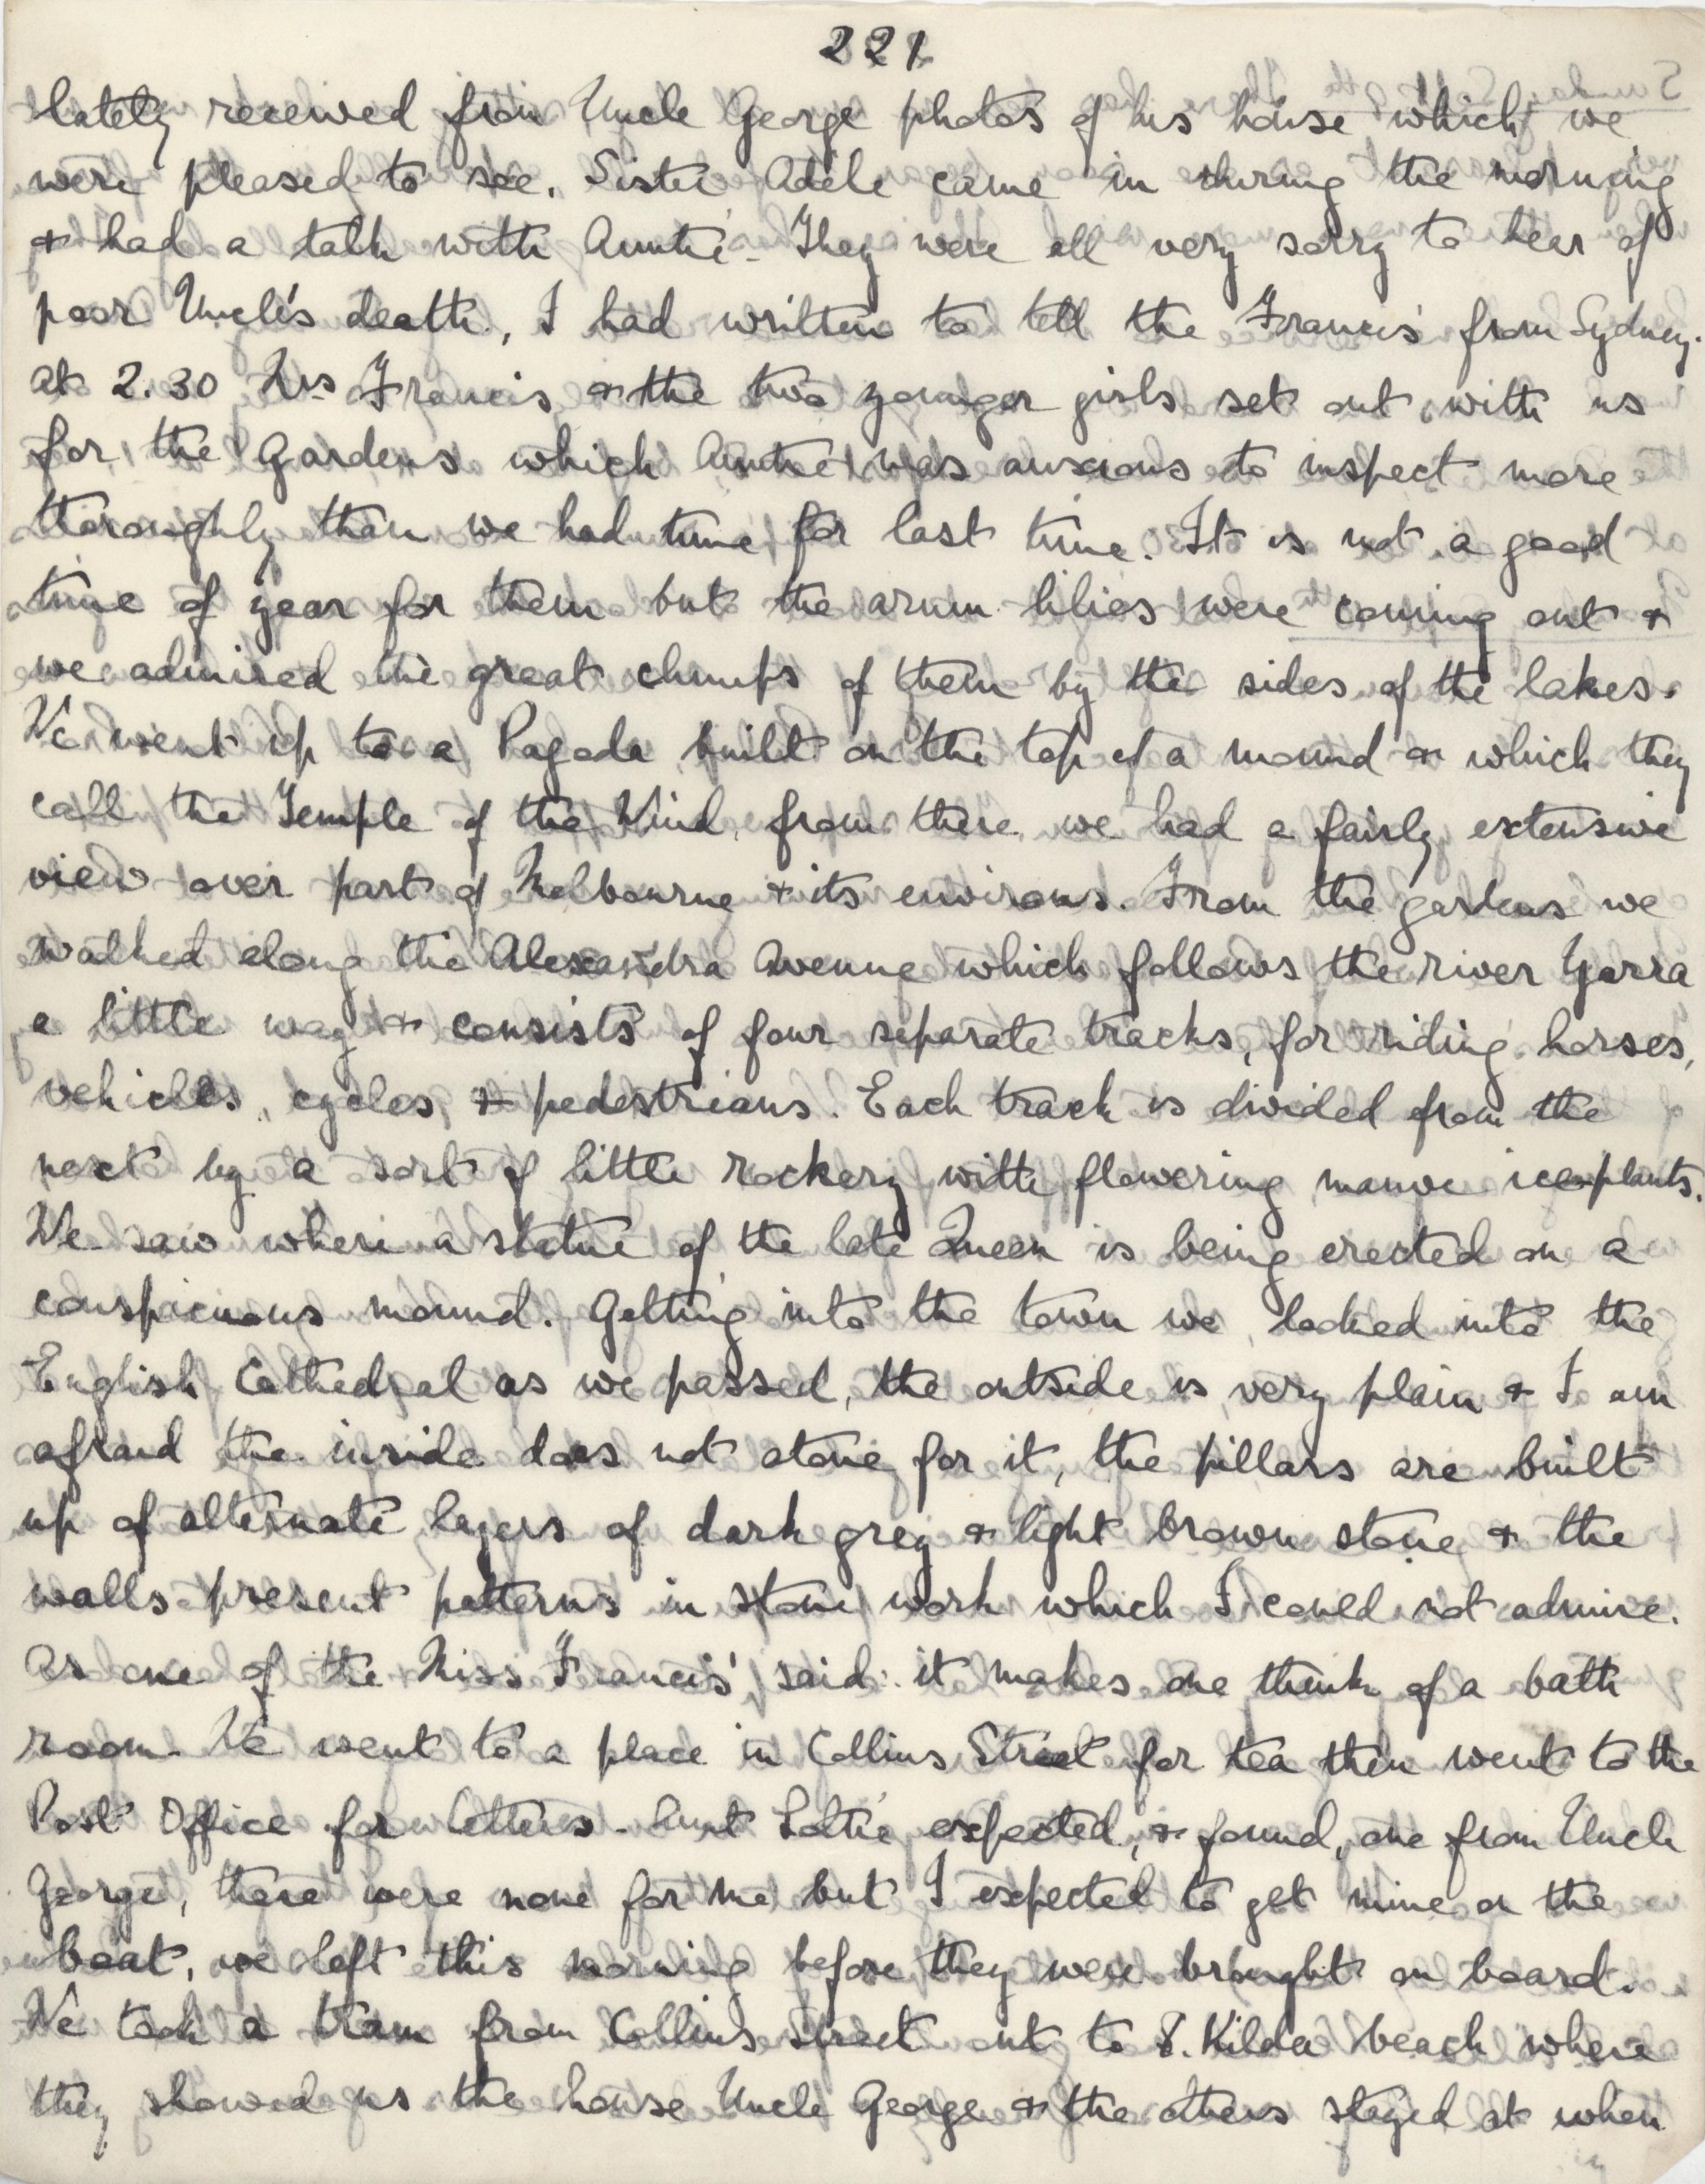 221.
lately received from Uncle George photos of his house which we
were pleased to see. Sister Adèle came in during the morning
& had a talk with Auntie - They were all very sorry to hear of
poor Uncle's death, I had written to tell the Francis' from Sydney.
At 2.30 Mrs Francis & the two younger girls set out with us
for the Gardens which Auntie was anxious to inspect more
thoroughly than we had time for last time. It is not a good
time of year for them but the arum lilies were coming out &
we admired the great clumps of them by the sides of the lakes.
We went up to a Pagoda built on the top of a mound & which they
call the Temple of the Wind, from there we had a fairly extensive
view over part of Melbourne & its environs. From the gardens we
walked along the Alexandra Avenue which follows the river Yarra
a little way & consists of four separate tracks, for riding horses,
vehicles, cycles, & pedestrians. Each track is divided from the
next by a sort of little rockery with flowering mauve iceplants.
We saw where a statue of the late Queen is being erected on a
conspicuous mound. Getting into the town we looked into the
English Cathedral as we passed, the outside is very plain & I am
afraid the inside does not atone for it, the pillars are built
up of alternate layers of dark grey & light brown stone & the
walls present patterns in stone work which I could not admire.
As one of the Miss Francis' said: it makes one think of a bath
room - We went to a place in Collins Street for tea then went to the
Post Office for letters - Aunt Lottie expected, & found, one from Uncle
George, there were none for me but I expected to get mine on the
boat, we left this morning before they were brought on board.
We took a tram from Collins Street out to S. Kilda beach where
they showed us the house Uncle George & the others stayed at when